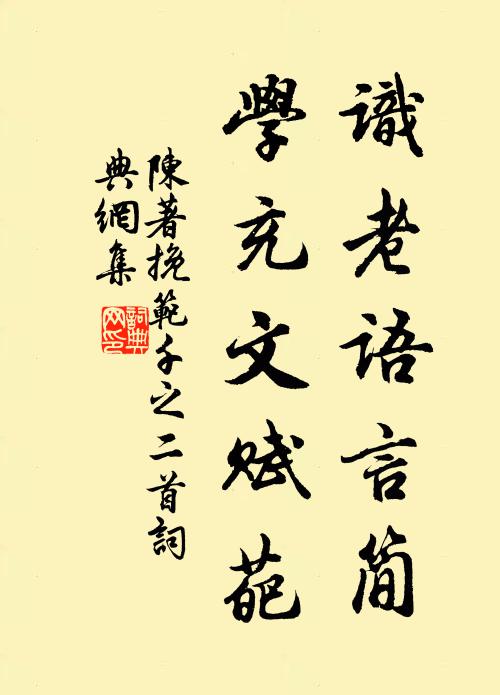 識老語言簡
學充文賦葩
陳著挽範千之二首詞
典網集
詞典網印